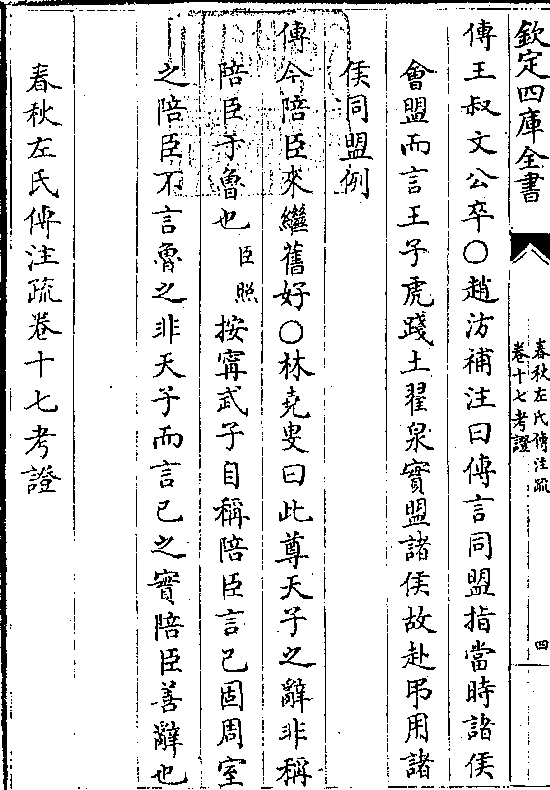 欽定四庫全書
春秋左氏傳注疏
卷十七考證
四
傳王叔文公卒○趙汸補注曰傳言同盟指當時諸侯
會盟而言王子虎踐土翟泉實盟諸侯故赴弔用諸
侯同盟例
傳今陪臣來繼舊好○林堯叟曰此尊天子之辭非稱
陪臣于魯也臣照按寗武子自稱陪臣言己固周室
之陪臣不言魯之非天子而言己之實陪臣善辭也
春秋左氏傳注疏卷十七考證